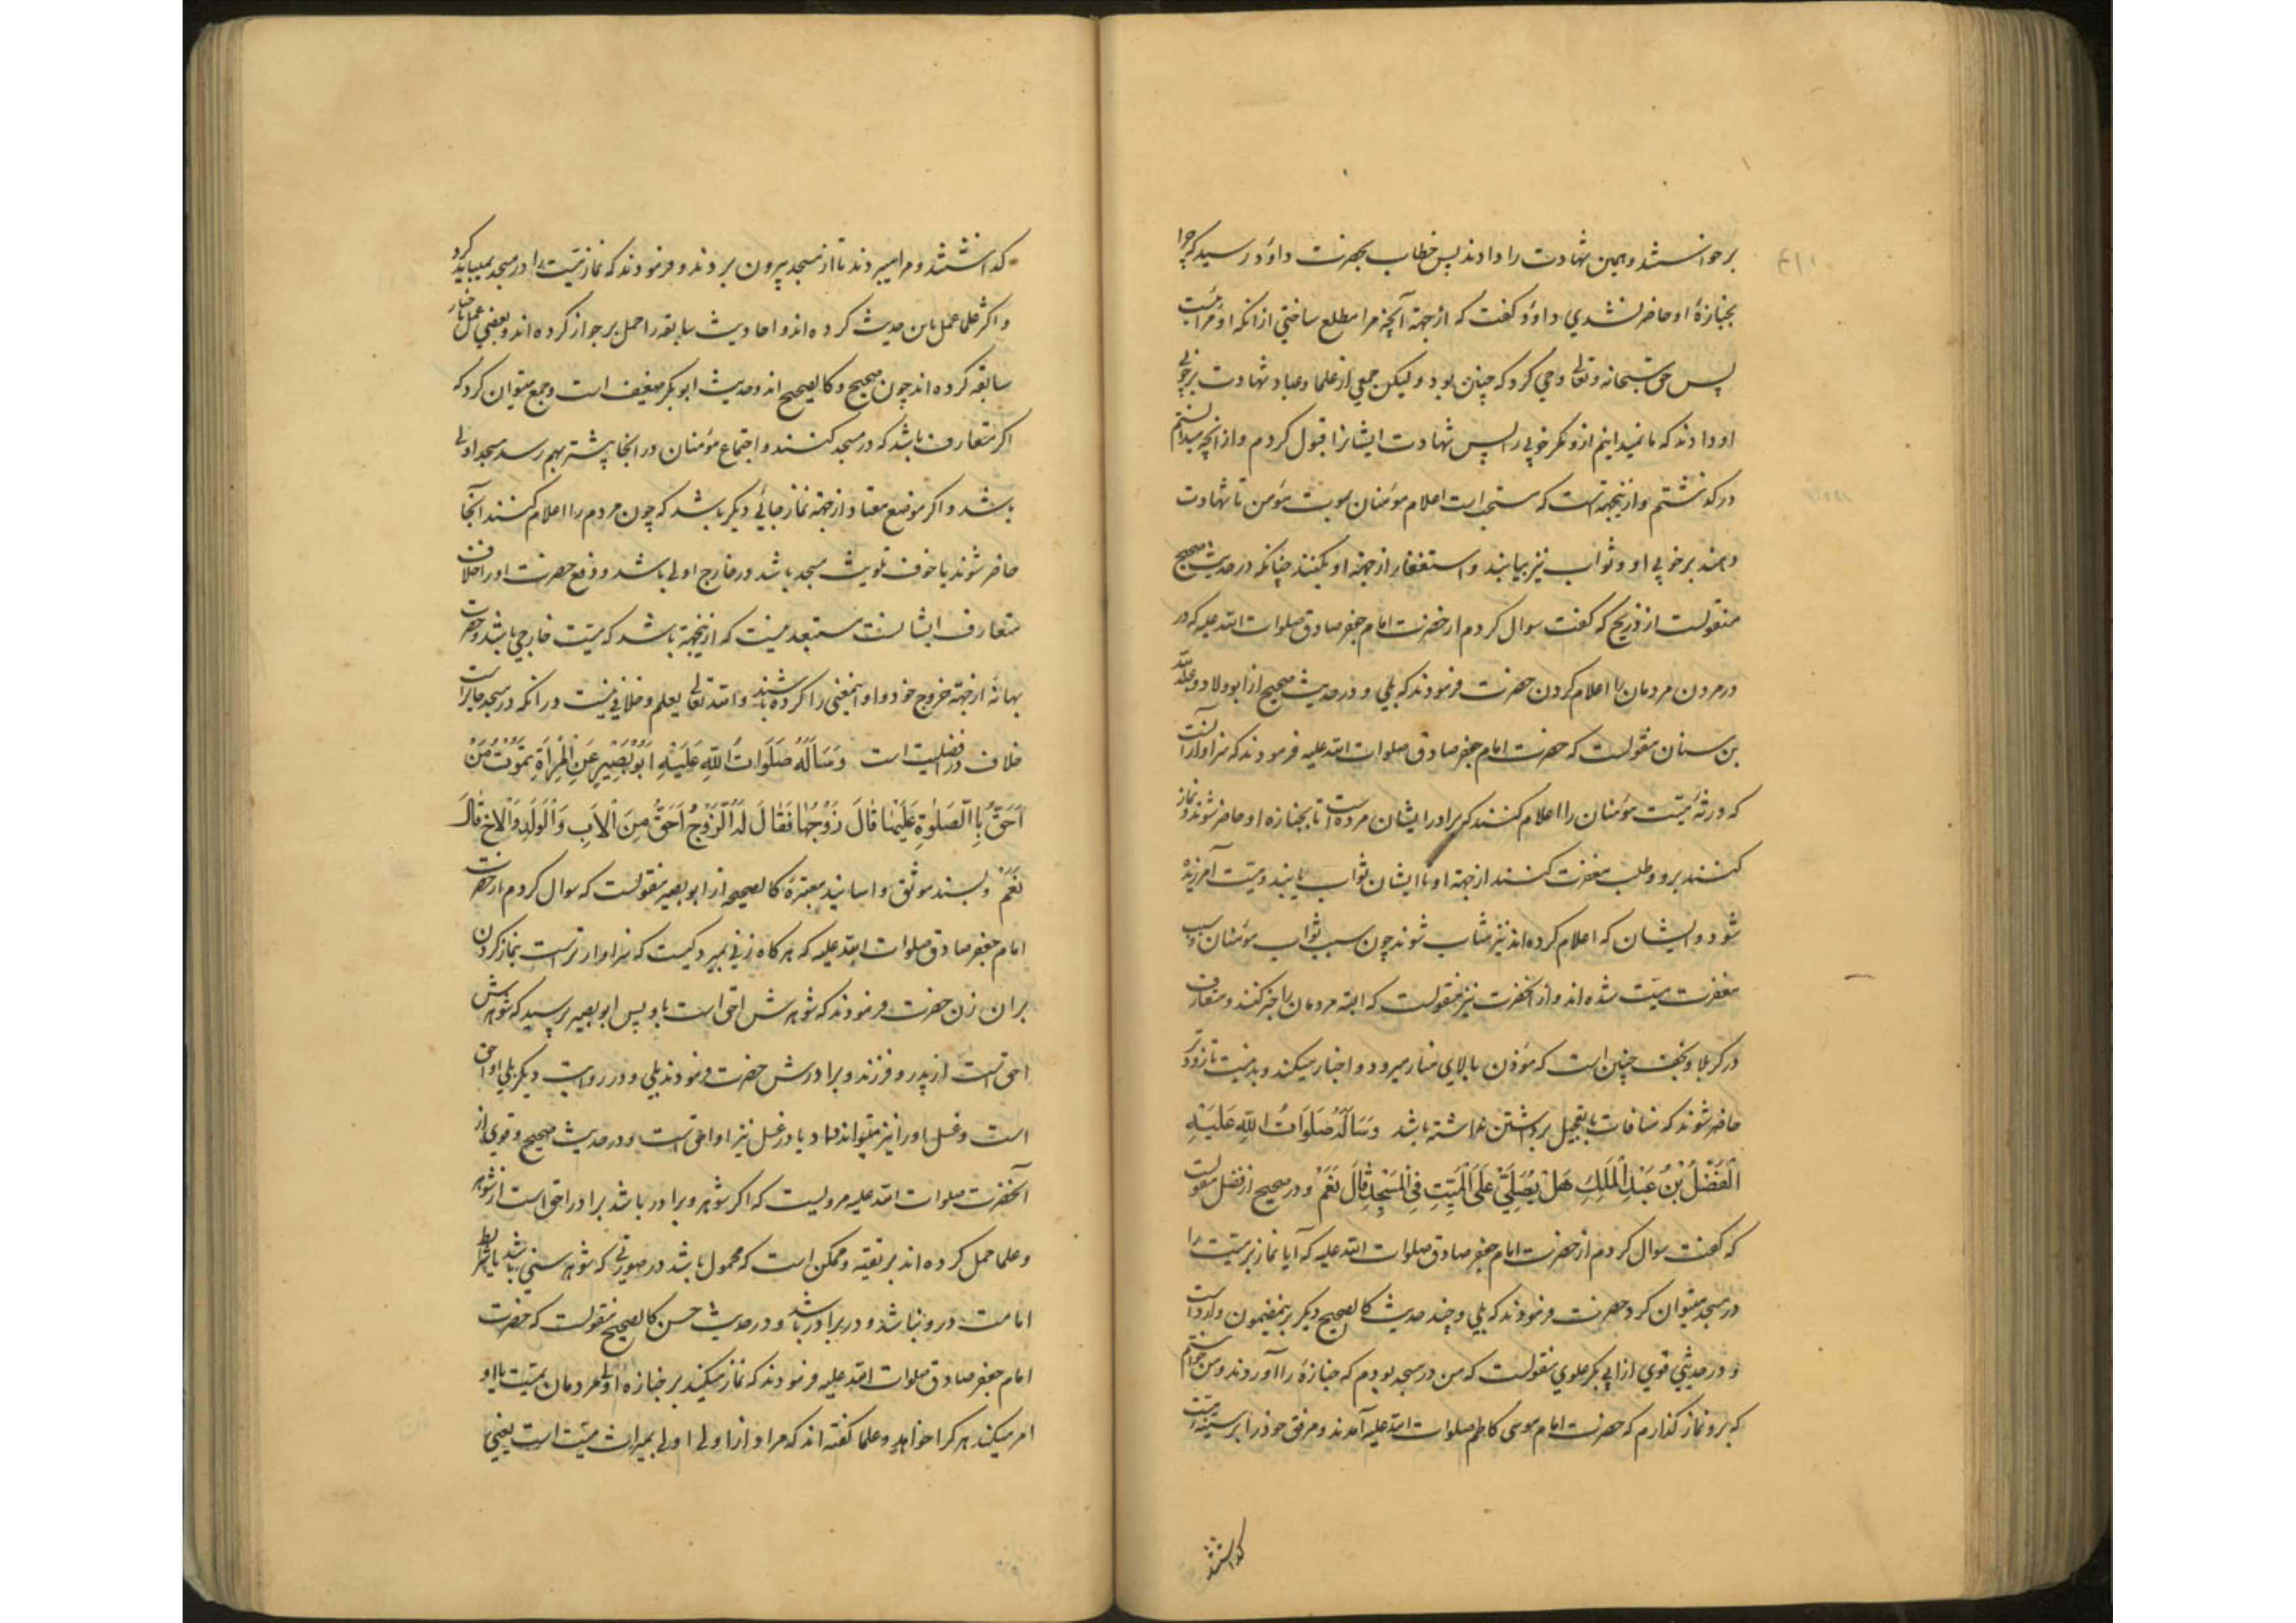 برخواستند و همین شهادت را دادند پس خطاب بحضرت داود رسید که چرا
بجنازهٔ او حاضر نشدی داود گفت که از جهة آنچه مرا مطلع ساختی ازانکه او مرائیست
پس حق سبحانه و تعالی وحی کرد که چنین بود و لیکن جمعی از علما و عباد شهادت بر خوبی
او دادند که ما نمیدانیم ازو مگر خوبی را پس شهادت ایشانرا قبول کردم و از آنچه میدانستم
درگذشتم و ازینجهتست که سنتست اعلام مؤمنان بموت مؤمن تا شهادت
دهند بر خوبی او و ثواب نیز بیابند و استغفار از جهة او بکنند چنانکه در حدیث صحیح
منقولست از ذریح که گفت سوال کردم از حضرت امام جعفر صادق صلوات الله علیه که در
در مردن مردمان را اعلام کردن حضرت فرمودند که بلی و در حدیث صحیح از ابو ولاد و عبدالله
بن سنان منقولست که حضرت امام جعفر صادق صلوات الله علیه فرمودند که سزاوار آنست
که ورثهٔ میت مؤمنان را اعلام کنند که برادر ایشان مرده است تا بجنازه او حاضر شوند و نماز
کنند برو و طلب مغفرت کنند از جهة او تا ایشان ثواب یابند و میت آمرزیده
شود و ایشان که اعلام کرده‌اند نیز مثاب شوند چون سبب ثواب مؤمنان و سبب
مغفرت میت شده‌اند و از آنحضرت نیز منقولست که البته مردمان را خبر کنند و متعارف
در کربلا و نجف چنین است که مؤذن بالای منار میرود و اخبار میکند و بد نیست تا زودتر
حاضر شوند که منافات با تعجیل برداشتن نداشته باشد وَسَاَلَهُ صَلَوَاتُ اللّٰهِ عَلَیْهِ
الْفَضْلُ بْنُ عَبْدِ الْمَلِكِ هَلْ یُصَلّٰی عَلَی الْمَیِّتِ فِی الْمَسْجِدِ قَالَ نَعَمْ و در صحیح از فضل منقولست
که گفت سوال کردم از حضرت امام جعفر صادق صلوات الله علیه که آیا نماز بر میت را
در مسجد میتوان کرد حضرت فرمودند که بلی و چند حدیث کالصحیح دیگر برینمضمون وارد است
و در حدیثی قوی از ابی بکر علوی منقولست که من در مسجد بودم که جنازهٔ را آوردند و من خواستم
که برو نماز گذارم که حضرت امام موسی کاظم صلوات الله علیه آمدند و مرفق خود را بر سینهٔ من
گذاشتند
گذاشتند و مرا میبردند تا از مسجد بیرون بردند و فرمودند که نماز میت را در مسجد نمیباید کرد
و اکثر علما عمل باین حدیث کرده‌اند و احادیث سابقه را حمل بر جواز کرده‌اند و بعضی عمل باخبار
سابقه کرده‌اند چون صحیح و کالصحیح‌اند و حدیث ابو بکر ضعیف است و جمع میتوان کرد که
اگر متعارف باشد که در مسجد کنند و اجتماع مؤمنان در آنجا بیشتر بهم رسد مسجد اولی
باشد و اگر موضع معتاد از جهة نماز جائی دیگر باشد که چون مردم را اعلام کنند آنجا
حاضر شوند یا خوف تلویث مسجد باشد در خارج اولی باشد و دفع حضرت او را خلاف
متعارف ایشانست مستبعد نیست که ازینجهة باشد که میت خارجی باشد و حضرت
بهانهٔ از جهة خروج خود و او اینمعنی را کرده باشند و الله تعالی یعلم و خلافی نیست در آنکه در مسجد جایز است
خلاف در افضلیت است وَسَاَلَهُ صَلَوَاتُ اللّٰهِ عَلَیْهِ اَبُو بَصِیرٍ عَنِ الْمَرْاَةِ تَمُوتُ مَنْ
اَحَقُّ بِالصَّلٰوةِ عَلَیْهَا قَالَ زَوْجُهَا فَقَالَ لَهُ الزَّوْجُ اَحَقُّ مِنَ الْاَبِ وَالْوَلَدِ وَالْاَخِ قَالَ
نَعَمْ و بسند موثق و اسانید معتبرهٔ کالصحیحه از ابو بصیر منقولست که سوال کردم از حضرت
امام جعفر صادق صلوات الله علیه که هر گاه زنی بمیرد کیست که سزاوارترست بنماز کردن
بران زن حضرت فرمودند که شوهرش احق است باو پس ابو بصیر پرسید که شوهرش
احق است از پدر و فرزند و برادرش حضرت فرمودند بلی و در روایت دیگر بلی او احق
است و غسل او را نیز میتواند داد یا در غسل نیز او احق است و در حدیث صحیح و قوی از
آنحضرت صلوات الله علیه مرویست که اگر شوهر و برادر باشد برادر احق است از شوهر
و علما حمل کرده‌اند بر تقیه و ممکن است که محمول باشد در صورتی که شوهر سنی باشد یا شرایط
امامت درو نباشد و در برادر باشد و در حدیث حسن کالصحیح منقولست که حضرت
امام جعفر صادق صلوات الله علیه فرمودند که نماز میکند بر جنازه اولی مردمان بمیت یا او
امر میکند هر کرا خواهد و علما گفته‌اند که مراد از اولی اولی بمیراث میت است یعنی